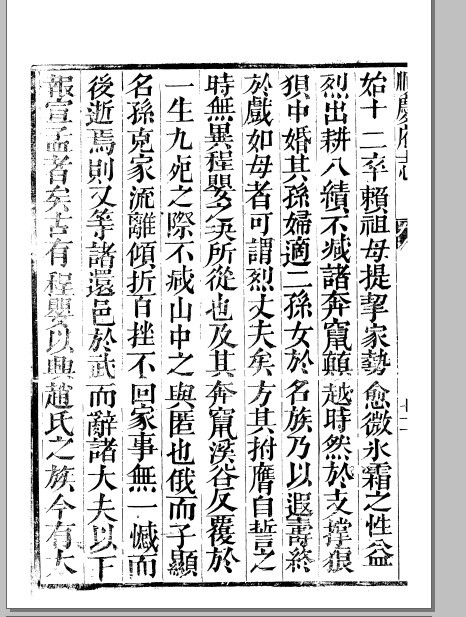 順慶府志
始十二卒賴祖母提挈家勢愈微氷霜之性益
烈出耕入績不减諸奔竄顛越時然於支撐狼
狽中婚其孫婦適二孫女於名族乃以遐壽終
於戲如母者可謂烈丈夫矣方其拊膺自誓之
時無異程嬰之决所從也及其奔竄溪谷反覆於
一生九死之際不减山中之與匿也俄而子顯
名孫克家流離傾折百挫不回家事無一憾而
後逝焉則又等諸還邑於武而辭諸大夫以下
報宣孟者矣古有程嬰以興趙氏之族今有大